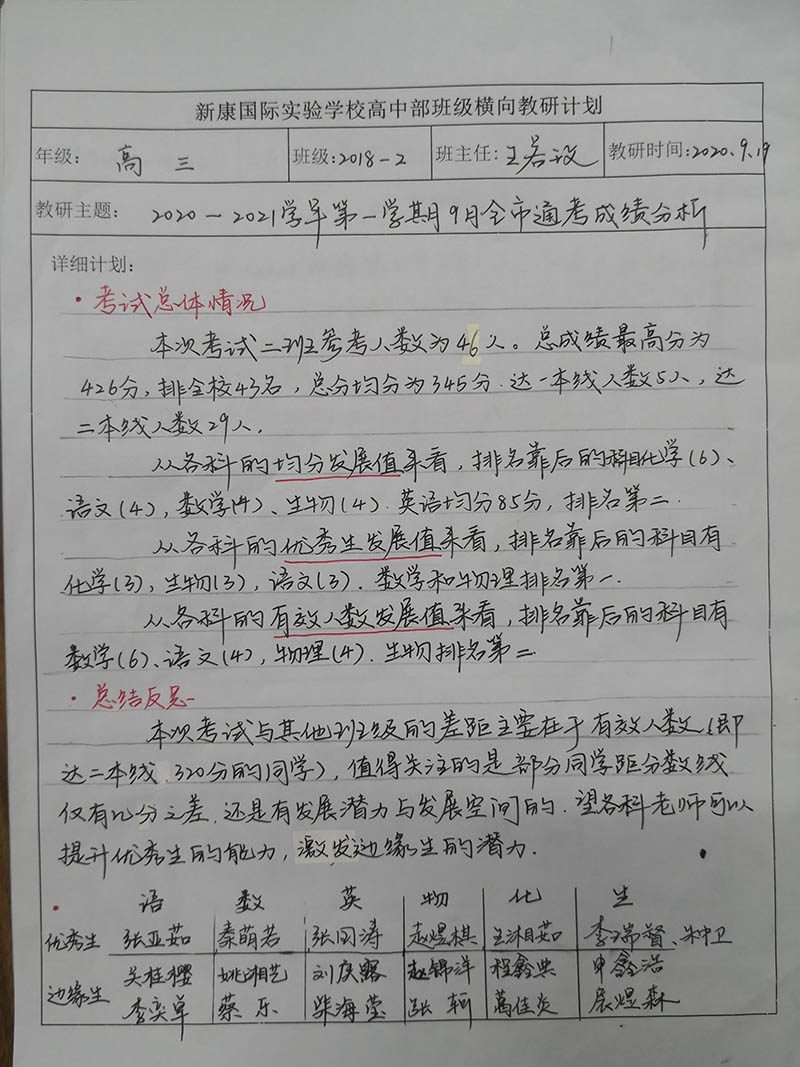 新康国际实验学校高中部班级横向教研计划
年级： 高三 班级：2018-2 班主任： 教研时间：2020.9.19
教研主题： 2020-2021学年第一学期月9月全市通考成绩分析
详细计划：
·考试总体情况
本次考试二班参考人数为46人。总成绩最高分为
426分，排全校43名，总分均分为345分.达一本线人数5人，达
二本线人数29人.
从各科的均分发展值来看，排名靠后的科目化学(6)、
语文(4)，数学(4)、生物(4).英语均分85分，排名第二.
从各科的优秀生发展值来看，排名靠后的科目有
化学(3)，生物(3)，语文(3).数学和物理排名第一.
从各科的有效人数发展值来看，排名靠后的科目有
数学(6)、语文(4)，物理(4).生物排名第二.
·总结反思
本次考试与其他班级的差距主要在于有效人数(即
达二本线320分的同学)，值得关注的是部分同学距分数线
仅有几分之差.还是有发展潜力与发展空间的.望各科老师可以
提升优秀生的能力，激发边缘生的潜力.
语 数 英 物 化 生
优秀生 张亚茹 秦萌若 张国涛 赵煜棋 王湘茹 李瑞督、宋中卫
边缘生 关桂樱 姚湘艺 刘庆露 赵锦洋 程鑫典 申鑫浩
李奕单 蔡乐 柴海莹 张轲 葛佳炎 展煜森